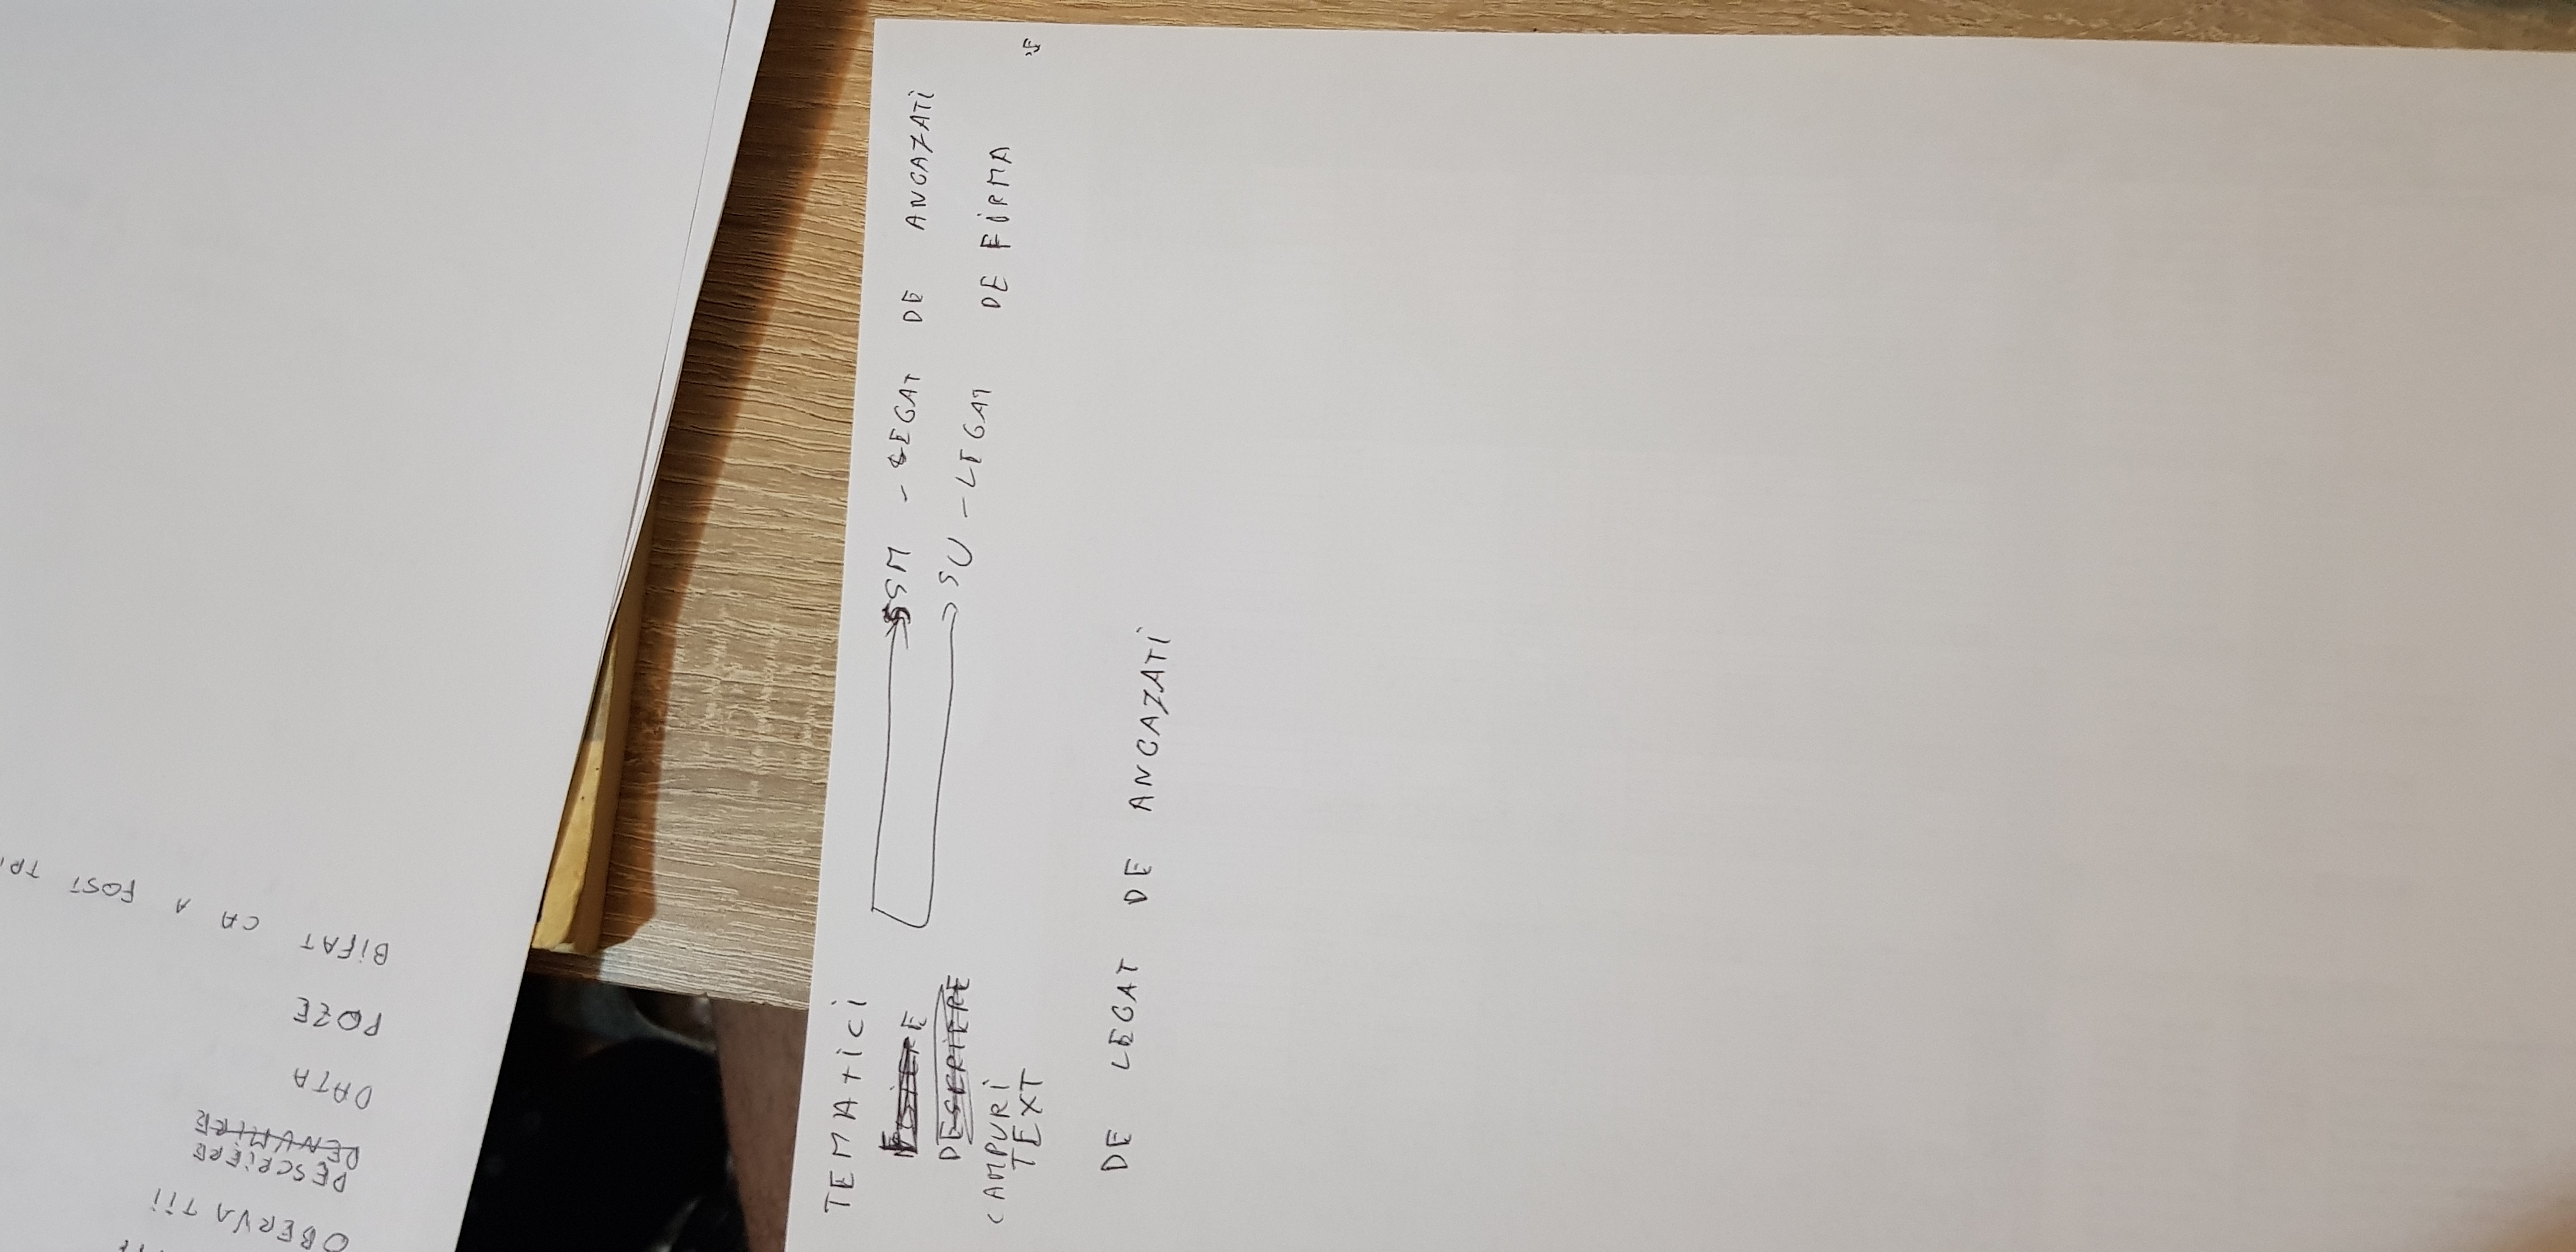 OBERVATII
DESCRIERE
DENUMIRE
DATA
POZE
BIFAT CA A FOST
TEMATICI
DESCRIERE
CAMPURI
TEXT
SSM - LEGAT DE ANGAZATI
SU - LEGAT DE FIRMA
DE LEGAT DE ANGAZATI